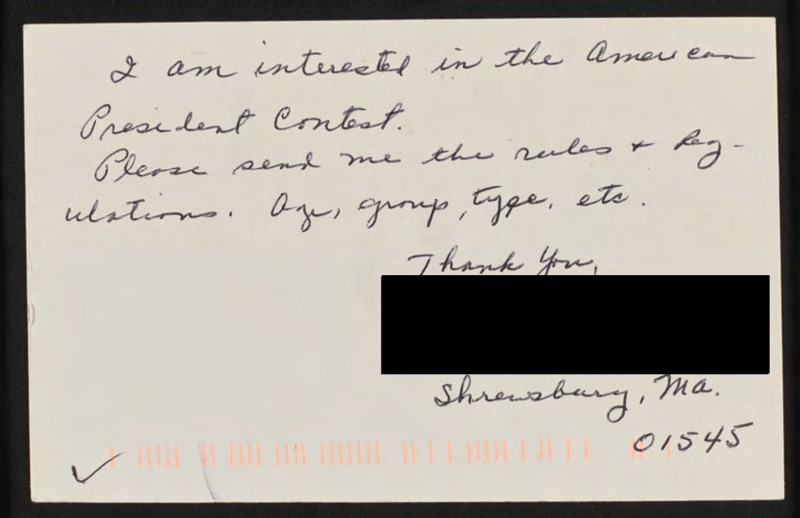 I am interested in the American
President Contest.
Please send me the rules + Reg-
ulations. Age, group, type, etc.
Thank You,
Shrewsbury, Ma.
01545